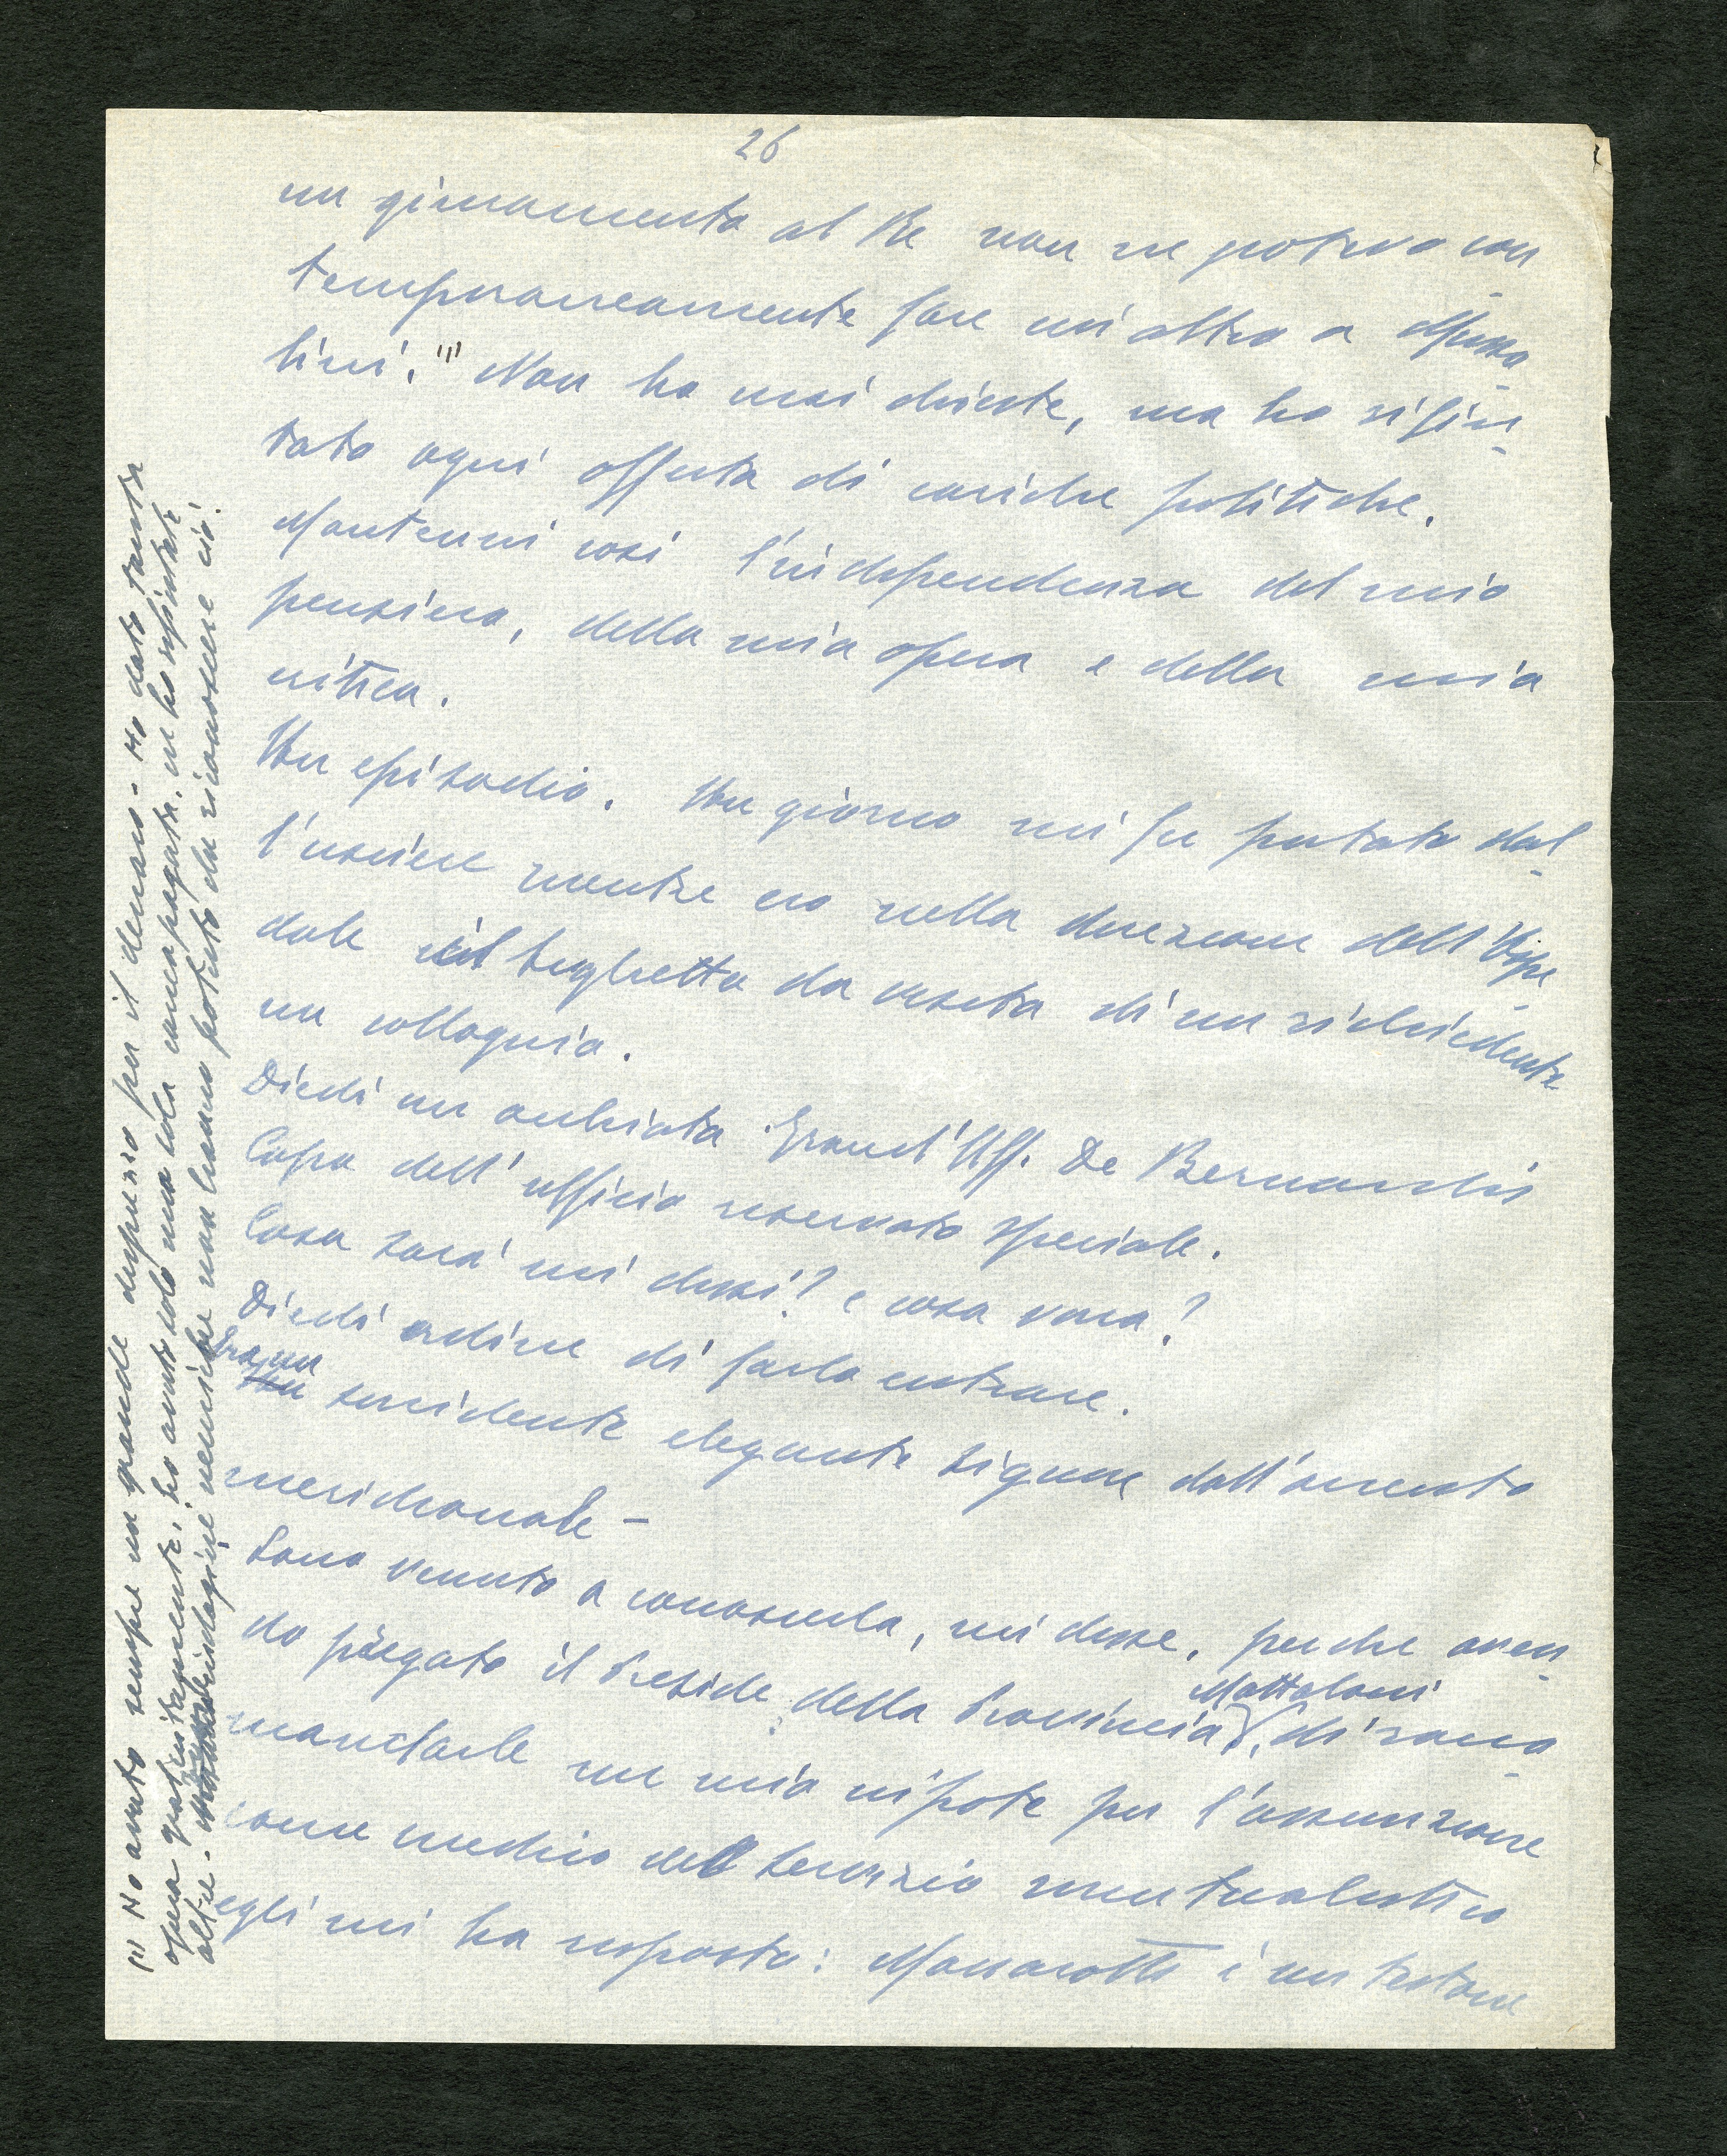 26
un giuramento al Re non ne potevo con
temporaneamente fare un'altro a Musso-
lini. (1) Non ho mai chieste, ma ho rifiu-
tato ogni offerta di cariche politiche.
Mantenni così l'indipendenza del mio
pensiero, della mia opera e della mia
critica.
Un episodio. Un giorno mi fu portato dal-
l'usciere mentre ero nella direzione dell'Ospe-
dale il biglietto da visita di un richiedente
un colloquio.
Diedi un occhiata. Grand'Uff. De Bernardis
Capo dell'ufficio riservato speciale.
Cosa sarà mi dissi? e cosa vorrà?
Diedi ordine di farlo entrare.
Era un sorridente elegante signore dall'accento
meridionale -
Sono venuto a conoscerla, mi disse, perchè aven-
do pregato il Preside della Provincia Mattaloni, di racco-
mandarle un mio nipote per l'assunzione
come medico del servizio mutualistico
egli mi ha risposto: Massarotti è un testone
(1) Ho avuto sempre un grande disprezzo per il denaro - Ho dato tanta
opera gratuitamente; ho avuto solo una sola carica pagata, ne ho rifiutate
altre. indagini nemiche non hanno potuto che riconoscere ciò.